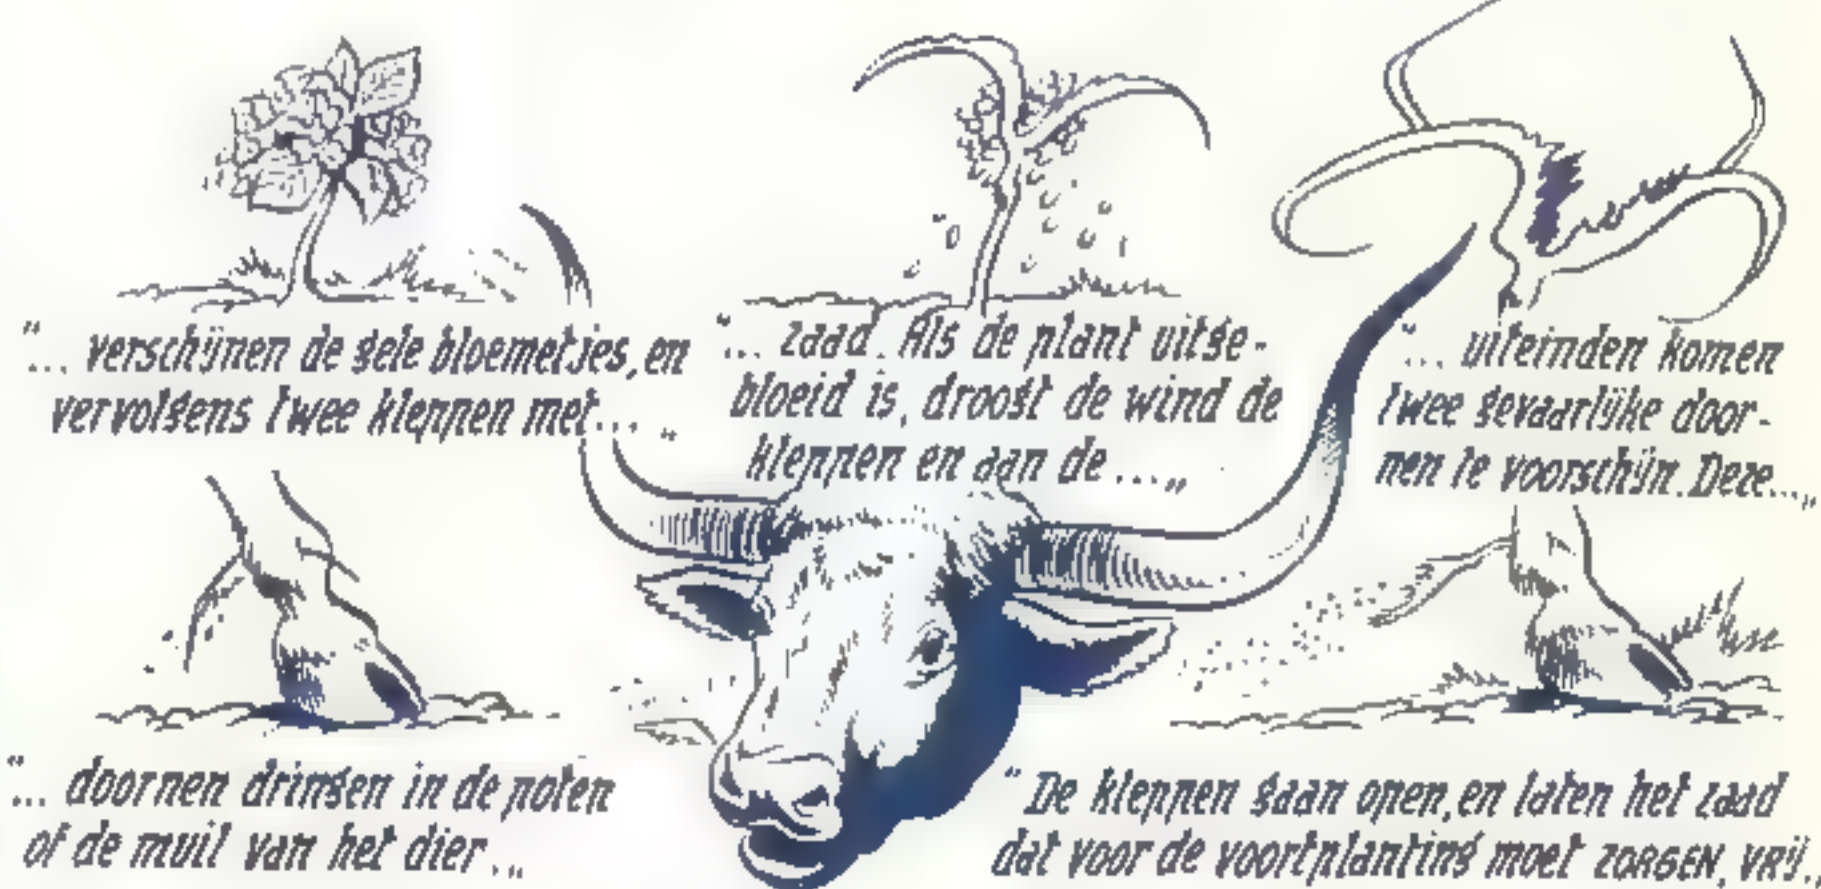 "... verschijnen de gele bloemetjes, en
vervolgens twee kleppen met... „
"... zaad. Als de plant uitge-
bloeid is, droogt de wind de
kleppen en aan de ...„
"... uiteinden komen
twee gevaarlijke door-
nen te voorschijn. Deze...„
"... doornen dringen in de poten
of de muil van het dier ...„
"De kleppen gaan open, en laten het zaad
dat voor de voortplanting moet ZORGEN, VRIJ..,